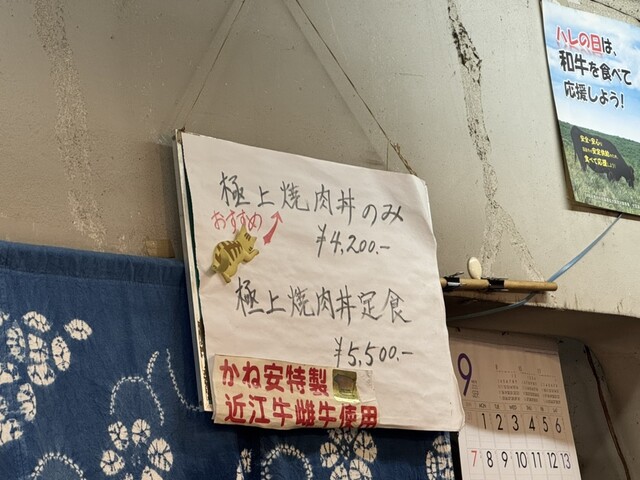 極上焼肉丼のみ
おすすめ
¥4,200.-
極上焼肉丼定食
¥5,500.-
かね安特製
近江牛雌牛使用
ハレの日は、
和牛を食べて
応援しよう!
9
MON TUE WED THU FRI SAT
1 2 3 4 5 6
7 8 9 10 11 12 13